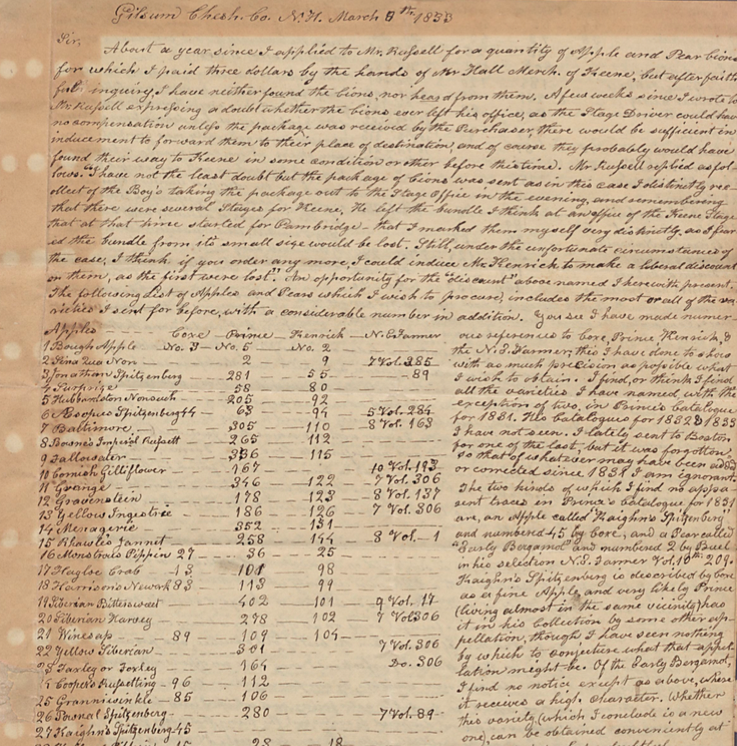 Gilsum Chesh. Co. N.H. March 8th 1833
Sir,
About a year since I applied to Mr. Russell for a quantity of Apple and Pear Cions
for which I paid three dollars by the hands of Mr Hall Merch. of Keene, but after faith
ful inquiry, I have neither found the Cions, nor heard from them. A few weeks since I wrote to
Mr Russell expressing a doubt whether the Cions ever left his office, as the Stage Driver could have
no compensation unless the package was received by the Purchaser, there would be sufficient in
inducement to forward them to their place of destination, and of course they probably would have
found their way to Keene in some condition or other before this time. Mr Russell replied as fol-
lows. "I have not the least doubt but the package of Cions was sent as in this case I distinctly rec-
ollect of the Boy's taking the package out to the Stage Office in the evening, and remembering
that there were several Stages for Keene, He left the bundle I think at an office of the Keene Stage
that at that time started for Cambridge – that I marked them myself very distinctly, as I fear
ed the bundle from its small size would be lost. Still, under the unfortunate circumstances of
the case, I think if you order any more, I could induce Mr Kenrick to make a liberal discount
on them, as the first were lost". An opportunity for the "discount" above named I herewith present.
The following List of Apples and Pears which I wish to procure, includes the most or all of the va-
rieties I sent for before, with a considerable number in addition. You see I have made numer-
Apples Coxe Prince Kenrick N.E. Farmer
1 Bough Apple No. 3 No. 5 No. 2
2 Sina Qua Non 2 9 7 Vol. 385
3 Jonathan Spitzenberg 281 55 89
4 Surprize 58 80
5 Hubbardston Nonsuch 205 92
6 Aesopus Spitzenberg 44 63 94 5 Vol. 284
7 Baltimore 305 110 8 Vol. 163
8 Bowne's Imperial Russett 265 112
9 Tallowater 336 115
10 Cornish Gilliflower 167 10 Vol. 193
11 Grange 346 122 7 Vol. 306
12 Gravenstein 178 123 8 Vol. 137
13 Yellow Ingestrie 186 126 7 Vol. 306
14 Menagerie 352 131
15 Rhawles Jannet 258 144 8 Vol. 1
16 Monstrous Pippin 27 36 25
17 Hagloe Crab 13 101 98
18 Harrison's Newark 83 113 99
19 Siberian Bittersweet 402 101 9 Vol. 17
20 Siberian Harvey 278 102 7 Vol 306
21 Winesap 89 109 104
22 Yellow Siberian 301 7 Vol. 306
23 Farley or Foxley 164 Do. 306
Cooper's Russetting 96 112
25 Granniwinkle 85 106
26 Pownal Spitzenberg 280 7 Vol. 89
27 Kaighn's Spitzenberg 45
15 28 18
ous references to Coxe, Prince Kenrick, &
the N.E. Farmer; this I have done to show
with as much precision as possible what
I wish to obtain. I find, or think I find
all the varieties I have named, with the
exception of two, in Prince's Catalogue
for 1831. His Catalogues for 1832 & 1833
I have not seen. I lately sent to Boston
for one of the last, but it was forgotten,
so that of whatever may have been added
or corrected since 1831 I am ignorant.
The two kinds of which I find no appa-
rent traces in Prince's Catalogue for 1831
are, an Apple called "Kaighn's Spitzenberg"
and numbered 45 by Coxe, and a Pear called
"Early Bergamot" and numbered 2 by Buel
in his selection N.E. Farmer Vol. 209.
Kaighn's Spitzenberg is described by Coxe
as a fine Apple, and very likely Prince
(living almost in the same vicinity) has
it in his Collection by some other ap-
pellation, though I have seen nothing
by which to conjecture what that appel-
lation might be. Of the Early Bergamot,
I find no notice except as above, where
it receives a high character. Whether
this variety (which I conclude is a new
one) can be obtained conveniently at